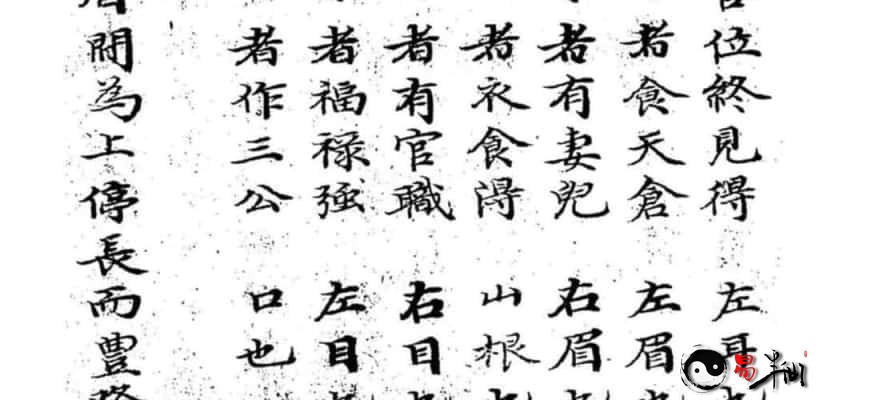 位終見得 左耳
者食天倉 左眉
者有妻兒 右眉
者衣食淂 山根
者有官職 右目
者福祿強 左目
者作三公 口也
間為上停長而豊
易半仙